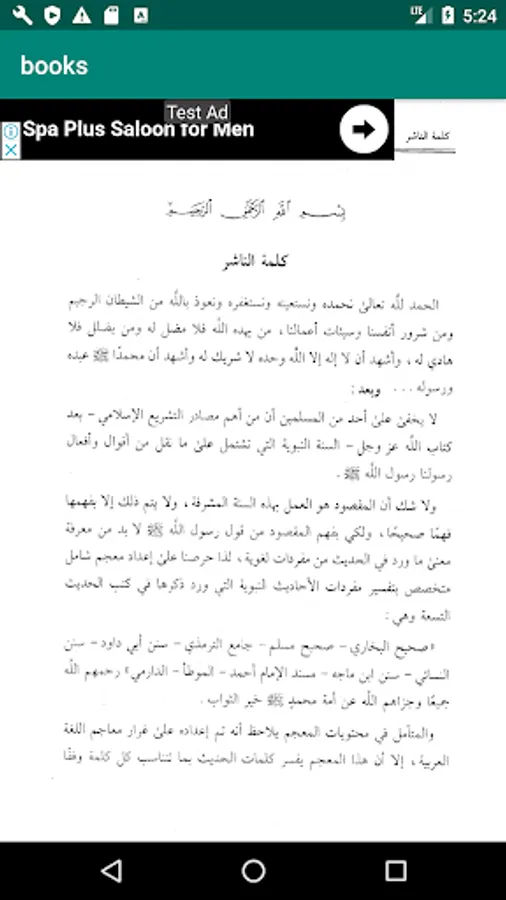 LTE 5:24
books
Test Ad
Spa Plus Saloon for Men
كلمة الناشر
بِسْمِ اللَّهِ الرَّحْمَٰنِ الرَّحِيمِ
كلمة الناشر
الحمد للَّه تعالىٰ نحمده ونستعينه ونستغفره ونعوذ باللَّه من الشيطان الرجيم
ومن شرور أنفسنا وسيئات أعمالنا، من يهده اللَّه فلا مضل له ومن يضلل فلا
هادي له، وأشهد أن لا إله إلا اللَّه وحده لا شريك له وأشهد أن محمدًا ﷺ عبده
ورسوله ... وبعد:
لا يخفىٰ علىٰ أحد من المسلمين أن من أهم مصادر التشريع الإسلامي - بعد
كتاب اللَّه عز وجل - السنة النبوية التي تشتمل علىٰ ما نقل من أقوال وأفعال
رسولنا رسول اللَّه ﷺ .
ولا شك أن المقصود هو العمل بهذه السنة المشرفة، ولا يتم ذلك إلا بفهمها
فهمًا صحيحًا، ولكي يفهم المقصود من قول رسول اللَّه ﷺ لا بد من معرفة
معنىٰ ما ورد في الحديث من مفردات لغوية، لذا حرصنا علىٰ إعداد معجم شامل
متخصص بتفسير مفردات الأحاديث النبوية التي ورد ذكرها في كتب الحديث
التسعة وهي:
«صحيح البخاري - صحيح مسلم - جامع الترمذي - سنن أبي داود - سنن
النسائي - سنن ابن ماجه - مسند الإمام أحمد - الموطأ - الدارمي» رحمهم اللَّه
جميعًا وجزاهم اللَّه عن أمة محمدٍ ﷺ خير الثواب .
والمتأمل في محتويات المعجم يلاحظ أنه تم إعداده علىٰ غرار معاجم اللغة
العربية، إلا أن هذا المعجم يفسر كلمات الحديث بما تتناسب كل كلمة وفقًا